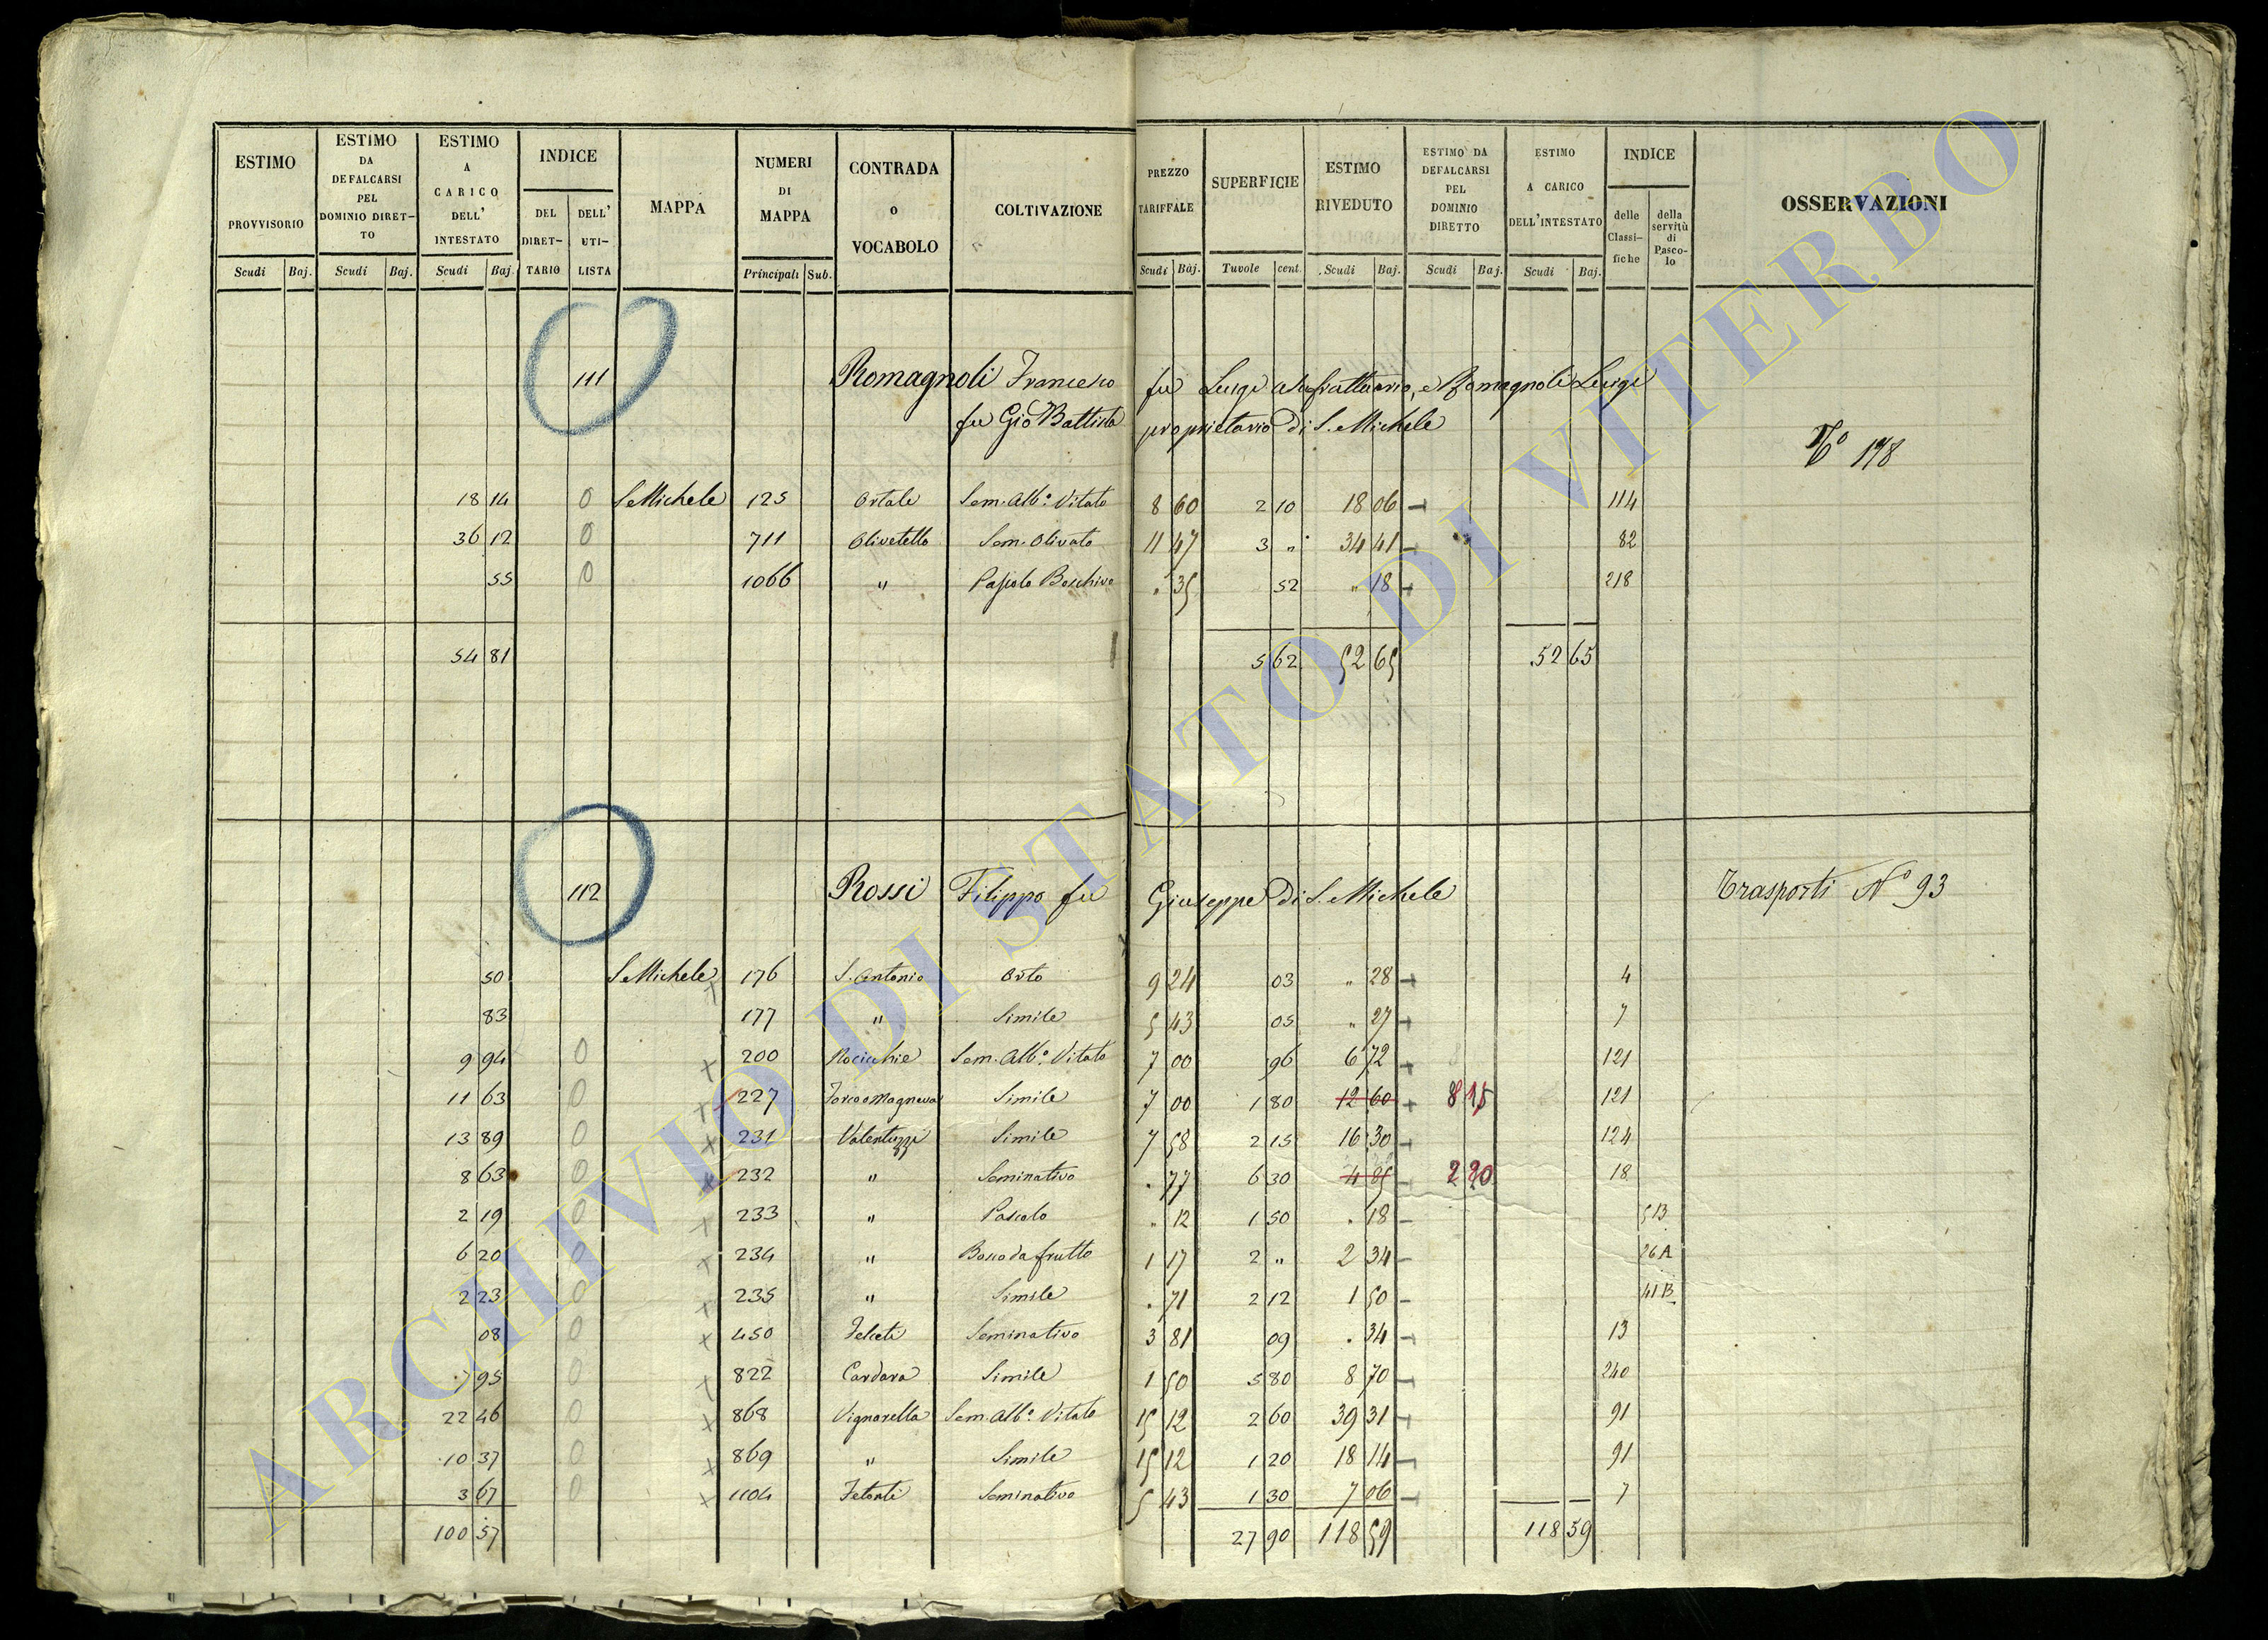 ESTIMO PROVVISORIO Scudi Baj.
ESTIMO DA DEFALCARSI PEL DOMINIO DIRET-TO Scudi Baj.
ESTIMO A CARICO DELL' INTESTATO Scudi Baj.
INDICE DEL DIRET-TARIO DELL' UTI-LISTA
MAPPA
NUMERI DI MAPPA Principali Sub.
CONTRADA o VOCABOLO
COLTIVAZIONE
PREZZO TARIFFALE Scudi Baj.
SUPERFICIE Tuvole cent.
ESTIMO RIVEDUTO Scudi Baj.
ESTIMO DA DEFALCARSI PEL DOMINIO DIRETTO Scudi Baj.
ESTIMO A CARICO DELL'INTESTATO Scudi Baj.
INDICE delle Classi-fiche della servitù di Pasco-lo
OSSERVAZIONI
111 Romagnoli Francesco fu Luigi usufruttuario, e Romagnoli Luigi
fu Gio Battista proprietario di S. Michele
N° 178
18 14 0 S. Michele 125 Ortale Sem. Alb.° Vitato 8 60 2 10 18 06 114
36 12 0 711 Olivetello Sem. Olivato 11 47 3 " 34 41 82
55 0 1066 " Pascolo Boschivo . 35 52 " 18 218
54 81 5 62 52 65 52 65
112 Rossi Filippo fu Giuseppe di S. Michele Trasporti N° 93
50 S. Michele 176 S. Antonio Orto 9 24 03 " 28 4
83 177 " Simile 5 43 05 " 27 7
9 94 0 200 Sem. Alb.° Vitato 7 00 96 6 72 121
11 63 0 227 Simile 7 00 1 80 12 60 8 15 121
13 89 0 231 Valentuzzi Simile 7 58 2 15 16 30 124
8 63 0 232 " Seminativo . 77 6 30 4 85 2 20 18
2 19 0 233 " Pascolo " 12 1 50 . 18 5 B
6 20 0 234 " Bosco da frutto 1 17 2 " 2 34 26 A
2 23 0 235 " Simile . 71 2 12 1 50 41 B
08 0 450 Seminativo 3 81 09 . 34 13
7 95 0 822 Cardara Simile 1 50 5 80 8 70 240
22 46 0 868 Vignarella Sem. Alb.° Vitato 15 12 2 60 39 31 91
10 37 0 869 " Simile 15 12 1 20 18 14 91
3 67 0 1104 Seminativo 5 43 1 30 7 06 7
100 57 27 90 118 59 118 59
ARCHIVIO DI STATO DI VITERBO